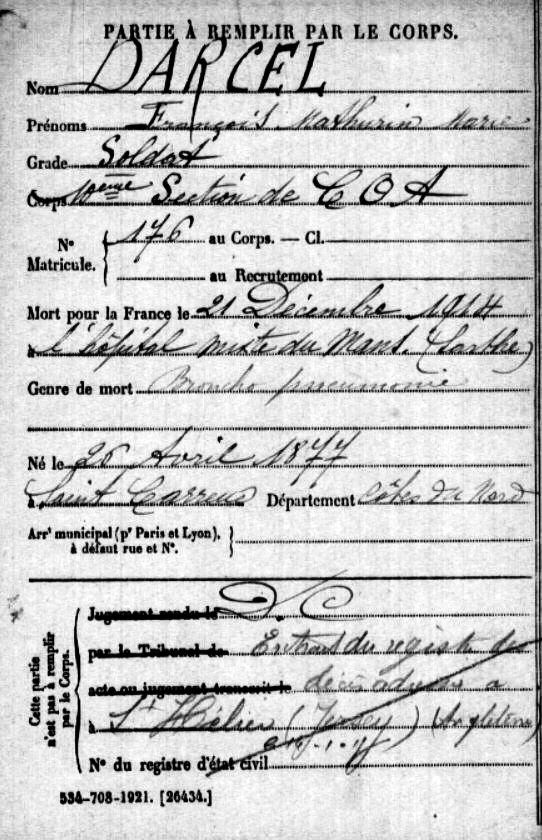 PARTIE À REMPLIR PAR LE CORPS.
Nom DARCEL
Prénoms François Mathurin Marie
Grade Soldat
Corps 10eme Section de C O A
N° Matricule. 176 au Corps. — Cl.
au Recrutement
Mort pour la France le 21 Décembre 1914
à l'hôpital mixte du Mans. (Sarthe)
Genre de mort Broncho pneumonie
Né le 26 Avril 1877
à Saint Carreuc Département Côtes du Nord
Arrt municipal (pr Paris et Lyon),
à défaut rue et N°.
Cette partie n'est pas à remplir par le Corps.
Jugement rendu le D. C
par le Tribunal de Extrait du registre des
acte ou jugement transcrit le décès adressé à
à St Hélier (Jersey) (Angleterre)
N° du registre d'état civil
534-708-1921. [26434.]